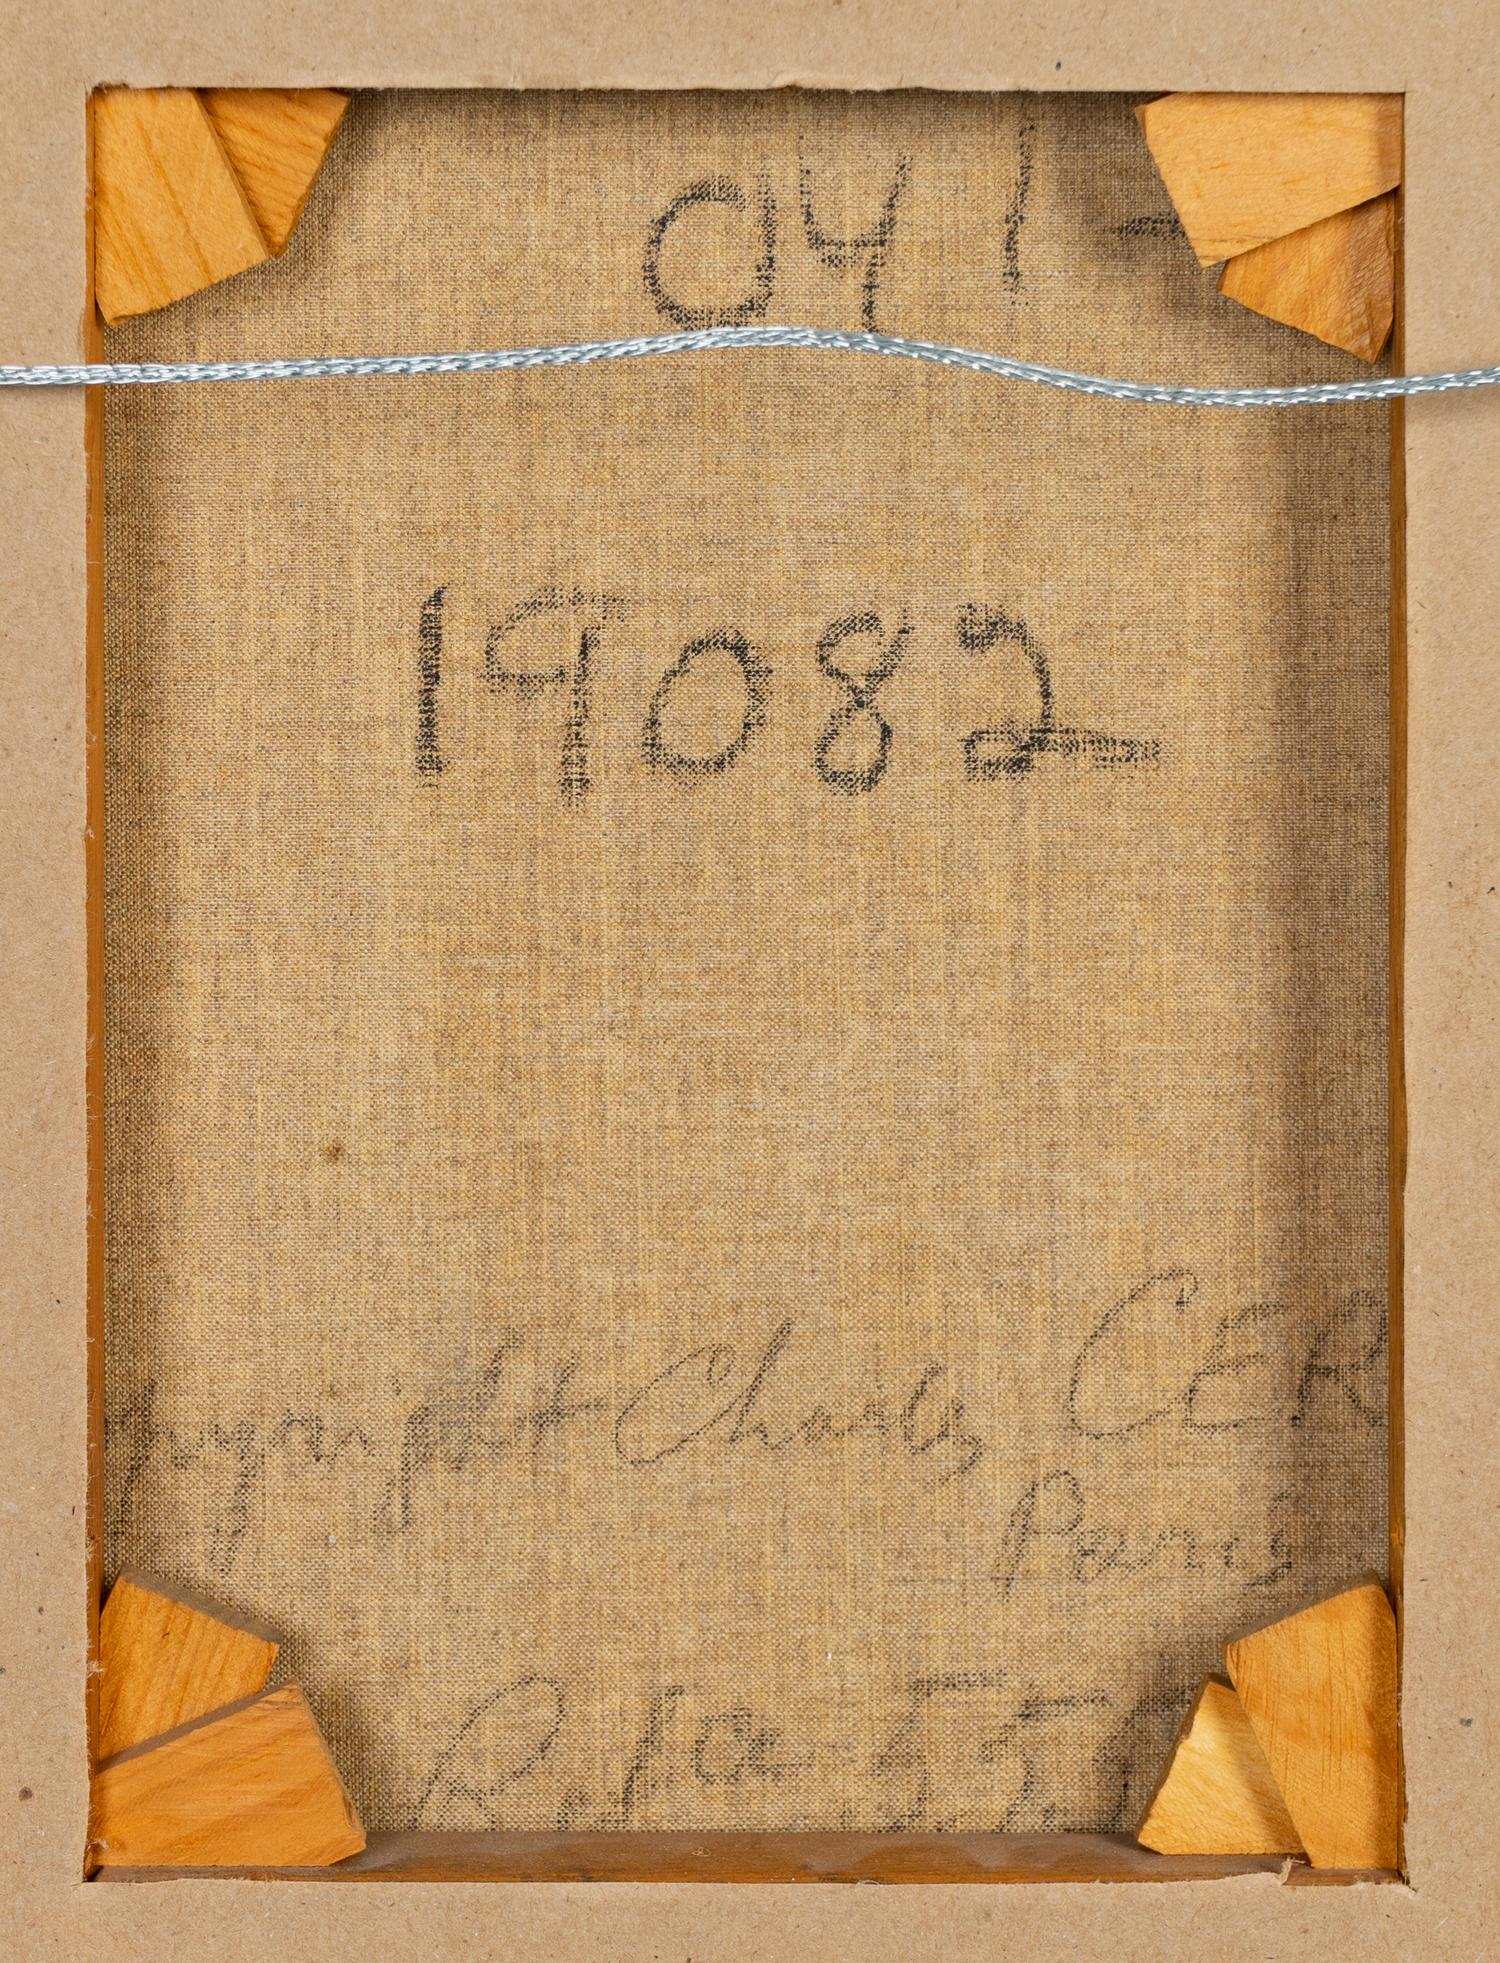 041-
19082
Copyright Charles CER
Paris